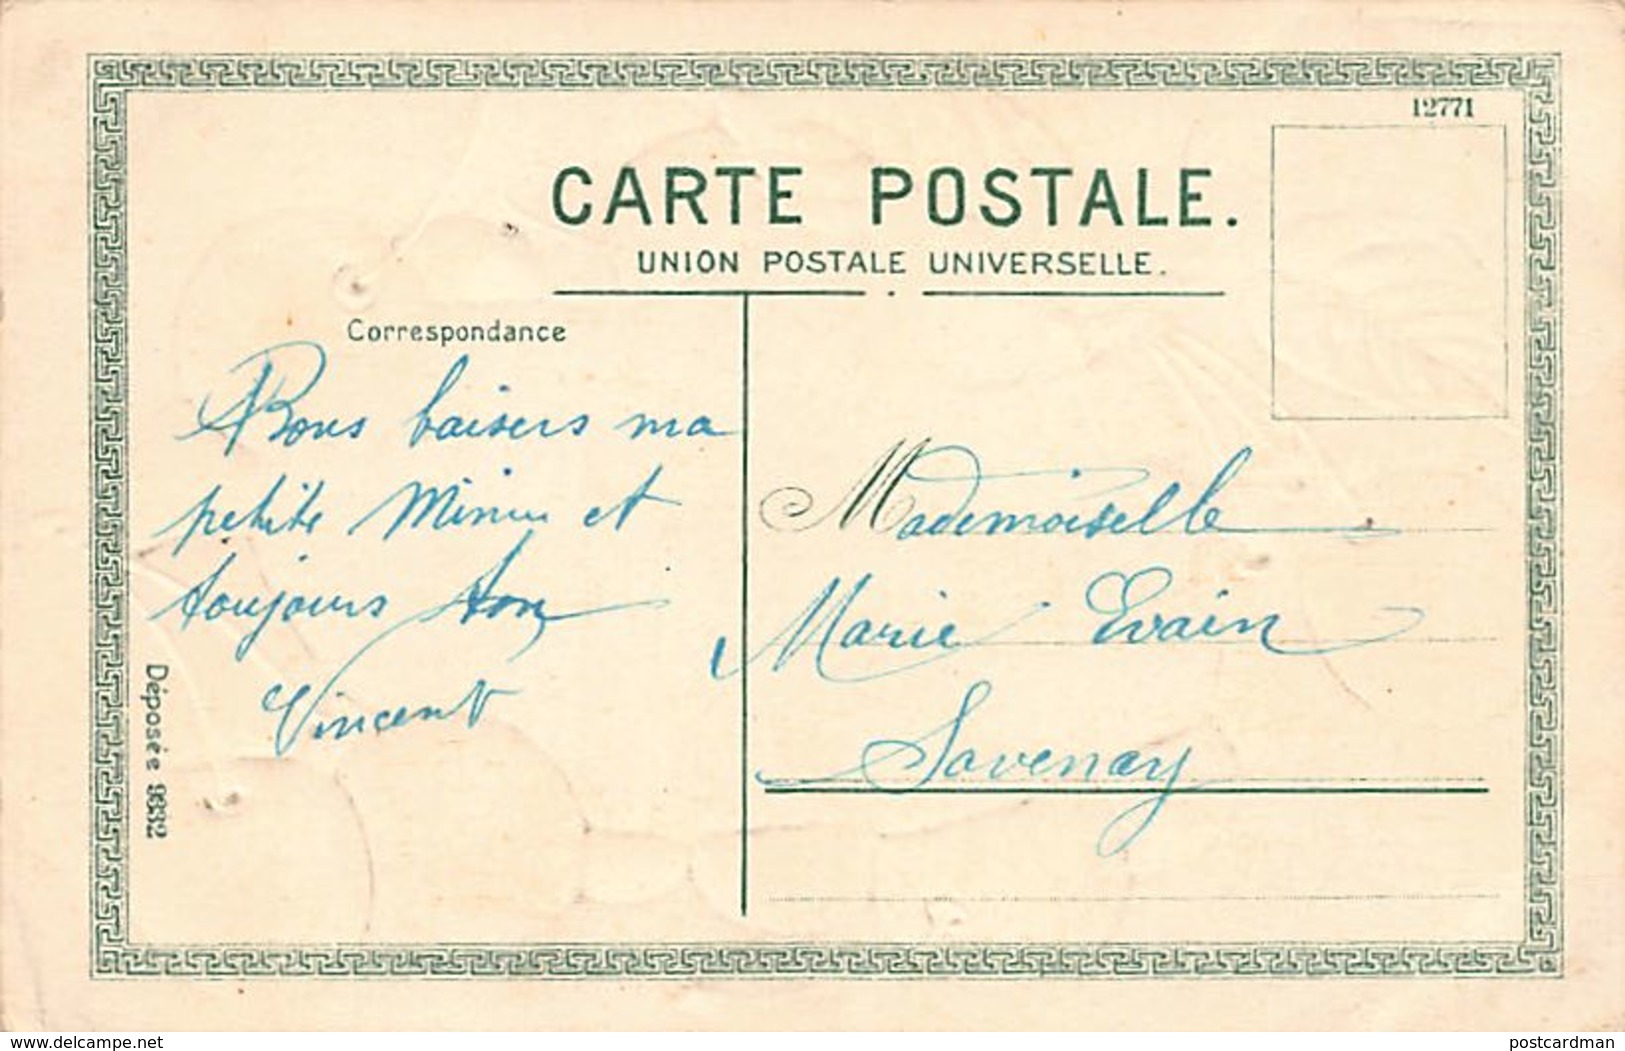 12771
CARTE POSTALE.
UNION POSTALE UNIVERSELLE.
Correspondance
Bons baisers ma
petite Mimi et
toujours ton
Vincent
Mademoiselle
Marie Evain
Savenay
Déposée 9632
www.delcampe.net
postcardman